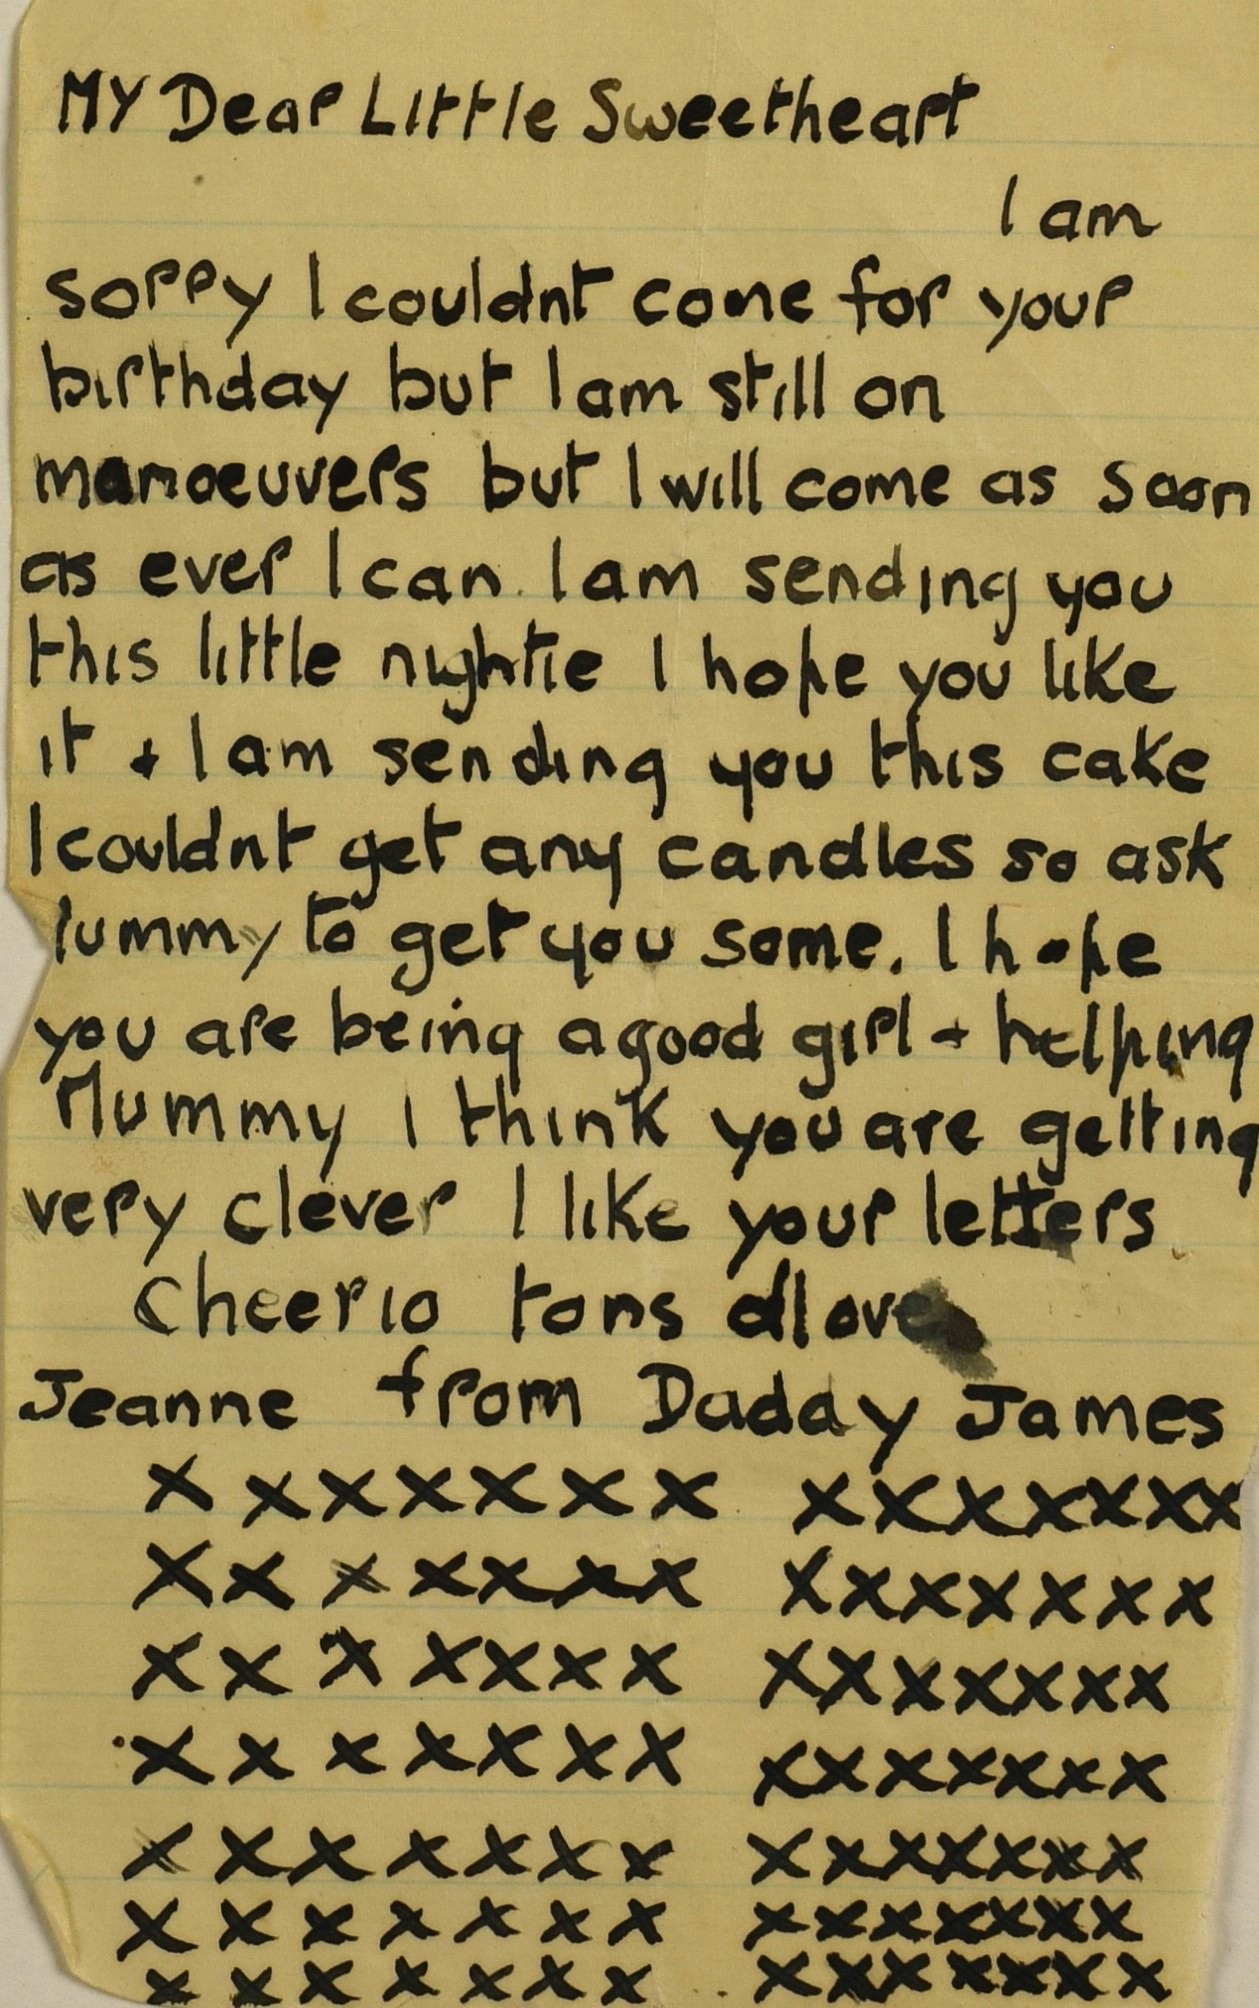 MY Dear Little Sweetheart
I am
sorry I couldnt come for your
birthday but I am still on
manoeuvers but I will come as soon
as ever I can. I am sending you
this little nightie I hope you like
it + I am sending you this cake
I couldnt get any candles so ask
Mummy to get you some. I hope
you are being a good girl + helping
Mummy I think you are getting
very clever I like your letters
Cheerio tons of love
Jeanne from Daddy James
x x x x x x x x x x x x x x
x x x x x x x x x x x x x x
x x x x x x x x x x x x x x
x x x x x x x x x x x x x x
x x x x x x x x x x x x x x
x x x x x x x x x x x x x x
x x x x x x x x x x x x x x